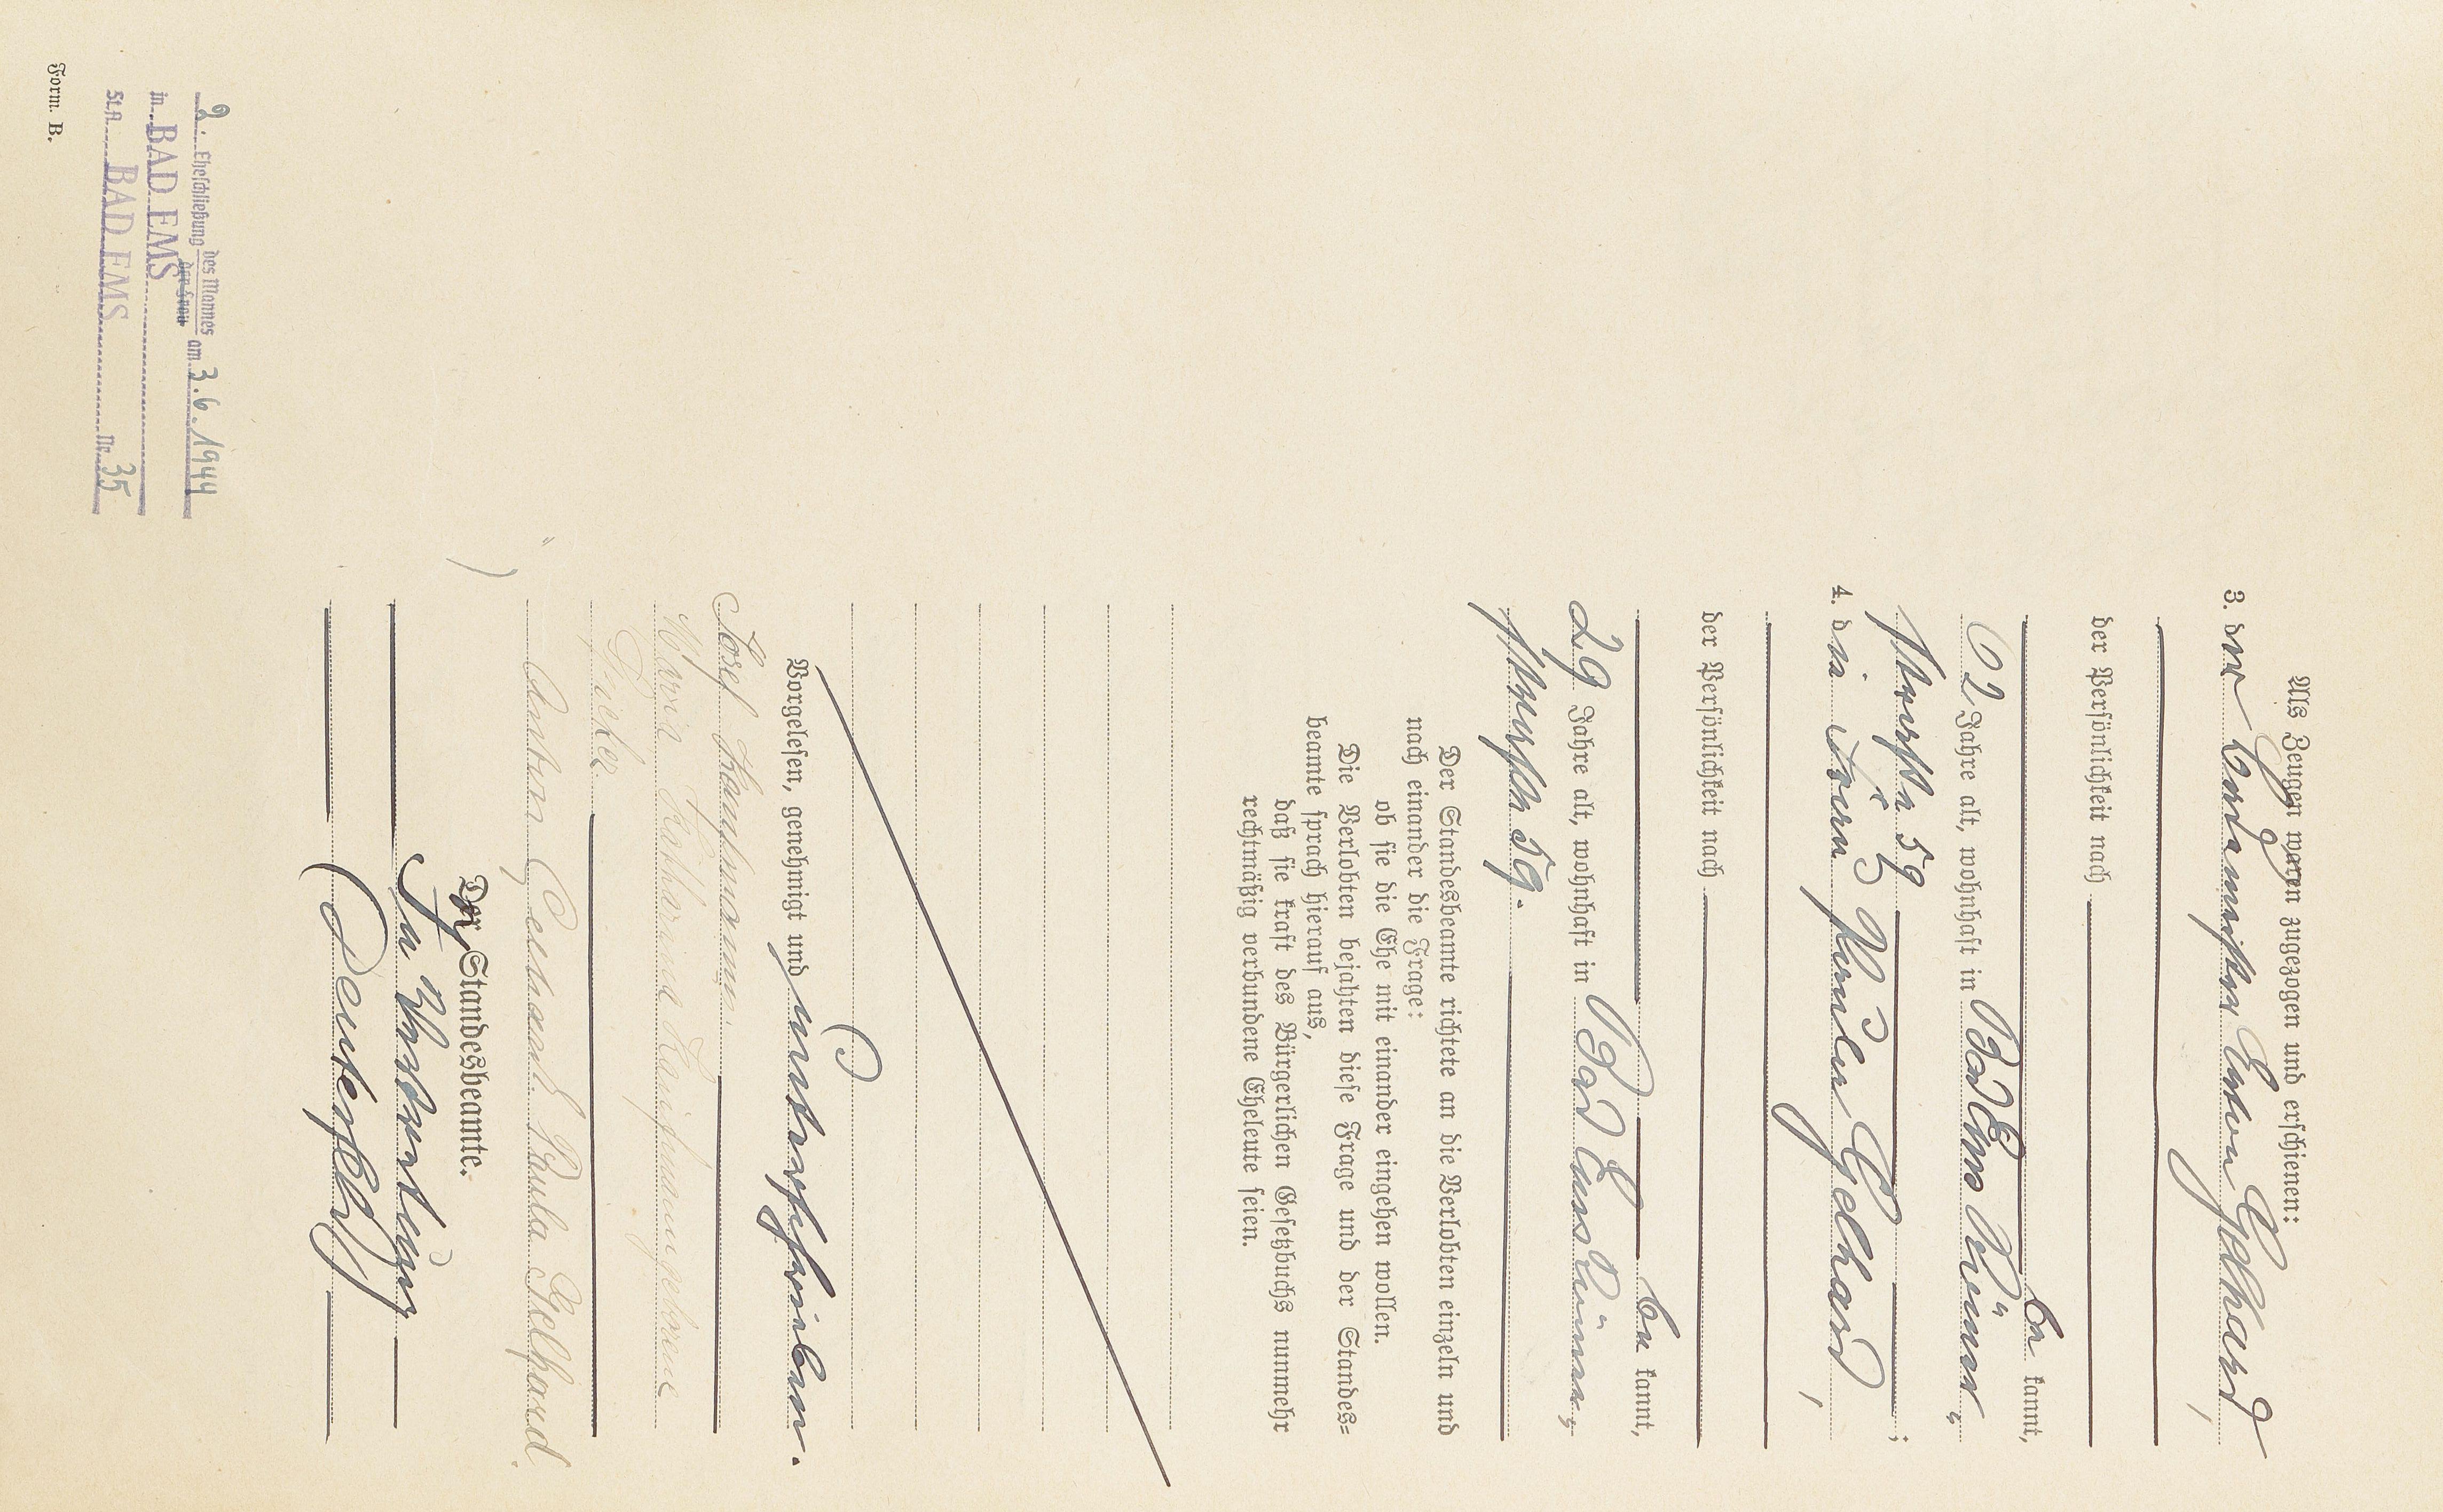 Als Zeugen waren zugezogen und erschienen:
3. der Bademeister Anton Gelhard,
der Persönlichkeit nach
be kannt,
62 Jahre alt, wohnhaft in Bad Ems Römer-
straße 59 ;
4. die Frau Paula Gelhard,
der Persönlichkeit nach
be kannt,
29 Jahre alt, wohnhaft in Bad Ems Römer-
straße 59.
Der Standesbeamte richtete an die Verlobten einzeln und
nach einander die Frage:
ob sie die Ehe mit einander eingehen wollen.
Die Verlobten bejahten diese Frage und der Standes=
beamte sprach hierauf aus,
daß sie kraft des Bürgerlichen Gesetzbuchs nunmehr
rechtmäßig verbundene Eheleute seien.
Vorgelesen, genehmigt und unterschrieben.
Josef Kaufmann.
Maria Katharina Kaufmann geborene
Anton Gelhard. Paula Gelhard.
Der Standesbeamte.
In Vertretung
2. Eheschließung des Mannes am 3.6.1944
der Frau
in BAD EMS
St.A. BAD EMS Nr. 35
Form. B.